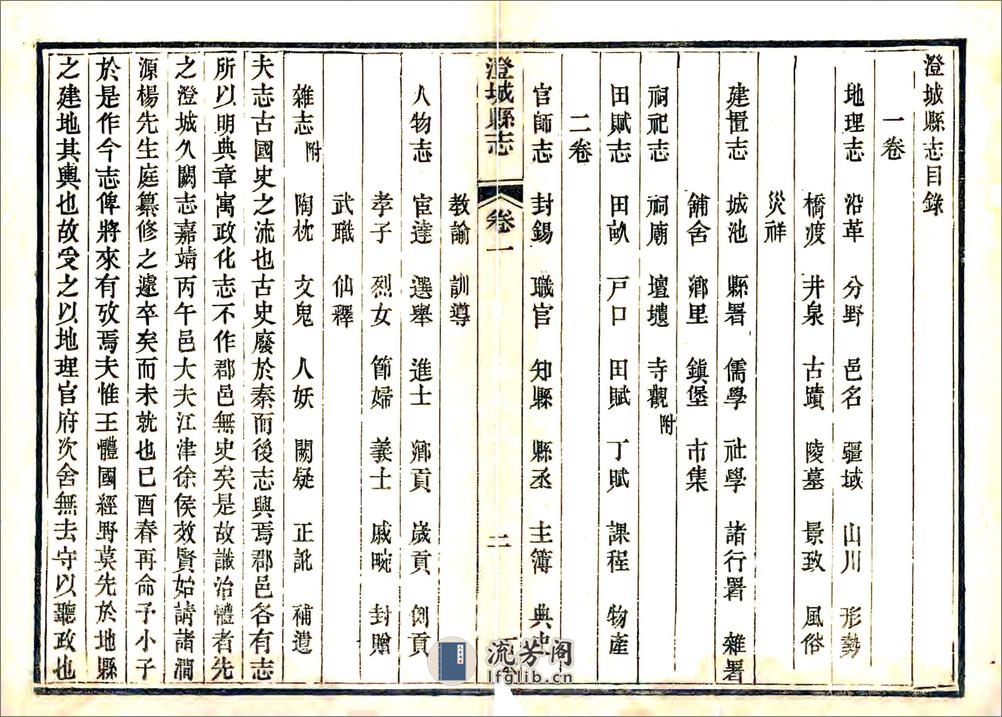 澄城縣志目錄
一卷
地理志 沿革 分野 邑名 疆域 山川 形勢
橋渡 井泉 古蹟 陵墓 景致 風俗
災祥
建置志 城池 縣署 儒學 社學 諸行署 雜署
舖舍 鄉里 鎭堡 市集
祠祀志 祠廟 壇壝 寺觀附
田賦志 田畝 戸口 田賦 丁賦 課程 物產
二卷
官師志 封錫 職官 知縣 縣丞 主簿 典史
澄城縣志 卷一 二
教諭 訓導
人物志 宦達 選舉 進士 鄉貢 歲貢 例貢
孝子 烈女 節婦 義士 戚畹 封贈
武職 仙釋
雜志附 陶枕 文鬼 人妖 闕疑 正訛 補遺
夫志古國史之流也古史廢於秦而後志興焉郡邑各有志
所以明典章寓政化志不作郡邑無史矣是故譏治體者先
之澄城久闕志嘉靖丙午邑大夫江津徐侯效賢始請諸澗
源楊先生庭纂修之遽卒矣而未就也已酉春再命予小子
於是作今志俾將來有攷焉夫惟王體國經野莫先於地縣
之建地其輿也故受之以地理官府次舍無去守以聽政也
流芳阁
lfglib.cn